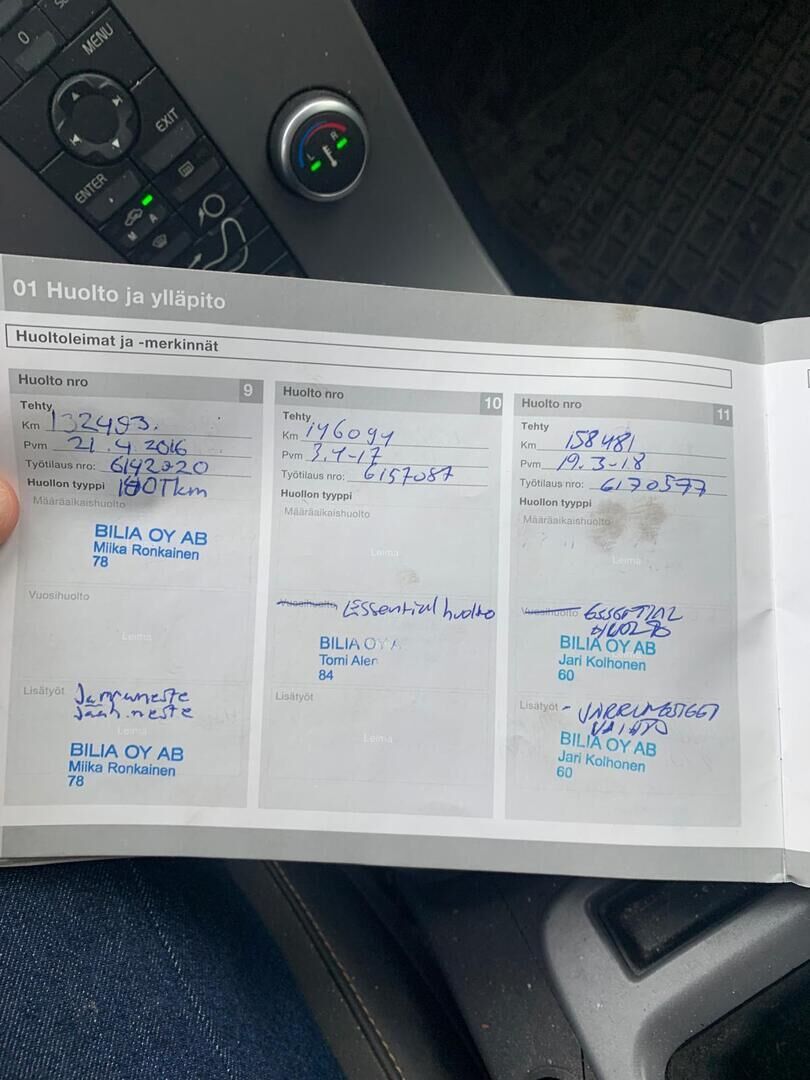 0
MENU
EXIT
ENTER
A
M
L
R
01 Huolto ja ylläpito
Huoltoleimat ja -merkinnät
Huolto nro 9
Tehty
Km 132493.
Pvm 21.4.2016
Työtilaus nro: 6142020
Huollon tyyppi Tkm
Määräaikaishuolto
BILIA OY AB
Miika Ronkainen
78
Vuosihuolto
Leima
Lisätyöt Jarruneste
Jääh.neste
Leima
BILIA OY AB
Miika Ronkainen
78
Huolto nro 10
Tehty
Km 146094
Pvm 3.4-17
Työtilaus nro: 6157087
Huollon tyyppi
Määräaikaishuolto
Leima
Vuosihuolto Essential huolto
BILIA OY A
Tomi Aler
84
Lisätyöt
Leima
Huolto nro 11
Tehty
Km 158481
Pvm 19.3-18
Työtilaus nro: 6170577
Huollon tyyppi
Määräaikaishuolto
Leima
Vuosihuolto
BILIA OY AB
Jari Kolhonen
60
Lisätyöt -
BILIA OY AB
Jari Kolhonen
60